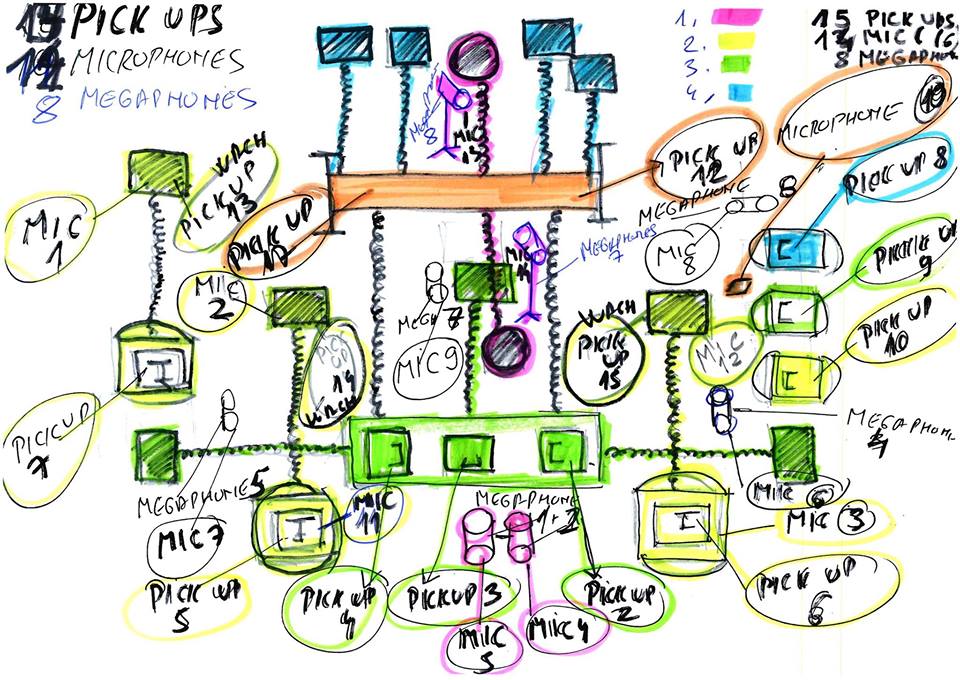 PICK UPS
MICROPHONES
8 MEGAPHONES
1.
2.
3.
4.
15 PICK UPS.
MIC
8 MEGAPHONE
MICROPHONE 10
PICK UP 8
PICK UP
12
MEGAPHONE
MIC
8
PICK UP
9
PICK UP
10
MIC
13
8
WRCH
PICK UP
13
MIC
1
PICK UP
MIC
14
MEGAPHONES
7
MIC
2
MIC 9
PICK UP
14
WRCH
WRCH
PICK UP
15
MIC
12
PICK UP
7
MEGAPHONE
4
MEGAPHONE 5
MIC 7
MIC
11
MEGAPHONE
1+2
MIC 6
MIC 3
I
I
I
C
C
C
PICK UP
5
PICK UP
4
PICKUP 3
PICKUP
2
PICK UP
6
MIC
5
MIC 4